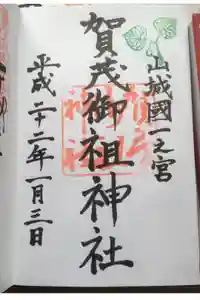 山城國一之宮
賀茂御祖神社
平成二十二年一月三日